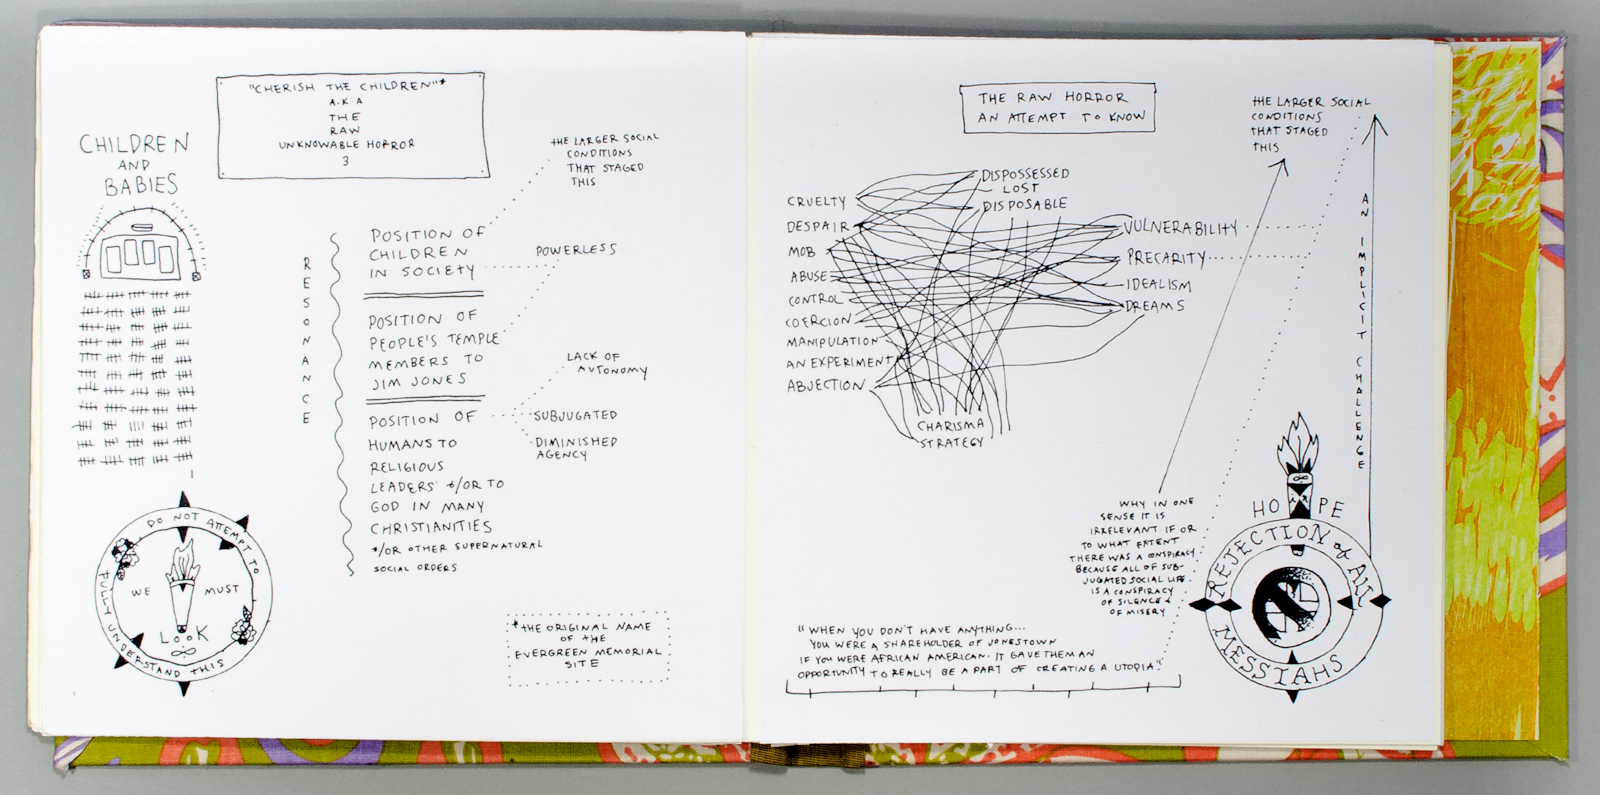 "CHERISH THE CHILDREN"*
A.K.A
THE
RAW
UNKNOWABLE HORROR
3
CHILDREN
AND
BABIES
THE LARGER SOCIAL
CONDITIONS
THAT STAGED
THIS
RESONANCE
POSITION OF
CHILDREN
IN SOCIETY
POWERLESS
POSITION OF
PEOPLE'S TEMPLE
MEMBERS TO
JIM JONES
LACK OF
AUTONOMY
POSITION OF
HUMANS TO
RELIGIOUS
LEADERS +/OR TO
GOD IN MANY
CHRISTIANITIES
+/OR OTHER SUPERNATURAL
SOCIAL ORDERS
SUBJUGATED
DIMINISHED
AGENCY
DO NOT ATTEMPT TO
FULLY UNDERSTAND THIS
WE MUST
LOOK
*THE ORIGINAL NAME
OF THE
EVERGREEN MEMORIAL
SITE
THE RAW HORROR
AN ATTEMPT TO KNOW
THE LARGER SOCIAL
CONDITIONS
THAT STAGED
THIS
AN IMPLICIT CHALLENGE
CRUELTY
DESPAIR
MOB
ABUSE
CONTROL
COERCION
MANIPULATION
AN EXPERIMENT
ABJECTION
DISPOSSESSED
LOST
DISPOSABLE
VULNERABILITY
PRECARITY
IDEALISM
DREAMS
CHARISMA
STRATEGY
WHY IN ONE
SENSE IT IS
IRRELEVANT IF OR
TO WHAT EXTENT
THERE WAS A CONSPIRACY
BECAUSE ALL OF SUB-
JUGATED SOCIAL LIFE
IS A CONSPIRACY
OF SILENCE &
OF MISERY
HOPE
REJECTION of All
MESSIAHS
"WHEN YOU DON'T HAVE ANYTHING...
YOU WERE A SHAREHOLDER OF JONESTOWN
IF YOU WERE AFRICAN AMERICAN. IT GAVE THEM AN
OPPORTUNITY TO REALLY BE A PART OF CREATING A UTOPIA."